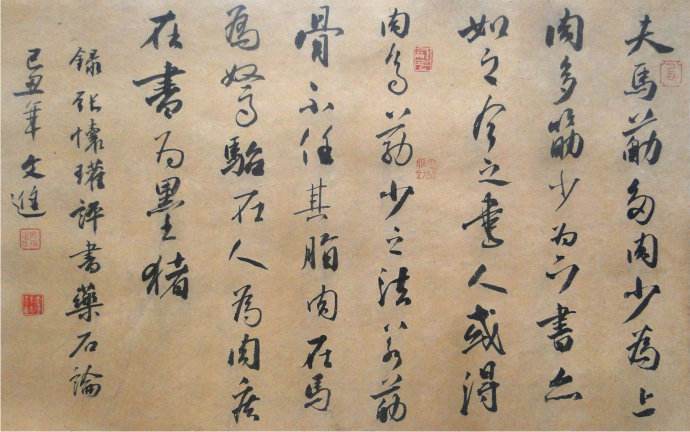 夫馬筋多肉少為上
肉多筋少为下書亦
如之今之書人或得
肉多筋少之法若筋
骨不任其脂肉在馬
為駑駘在人為肉疾
在書为墨猪
録張懷瓘評書藥石論
己丑年文進